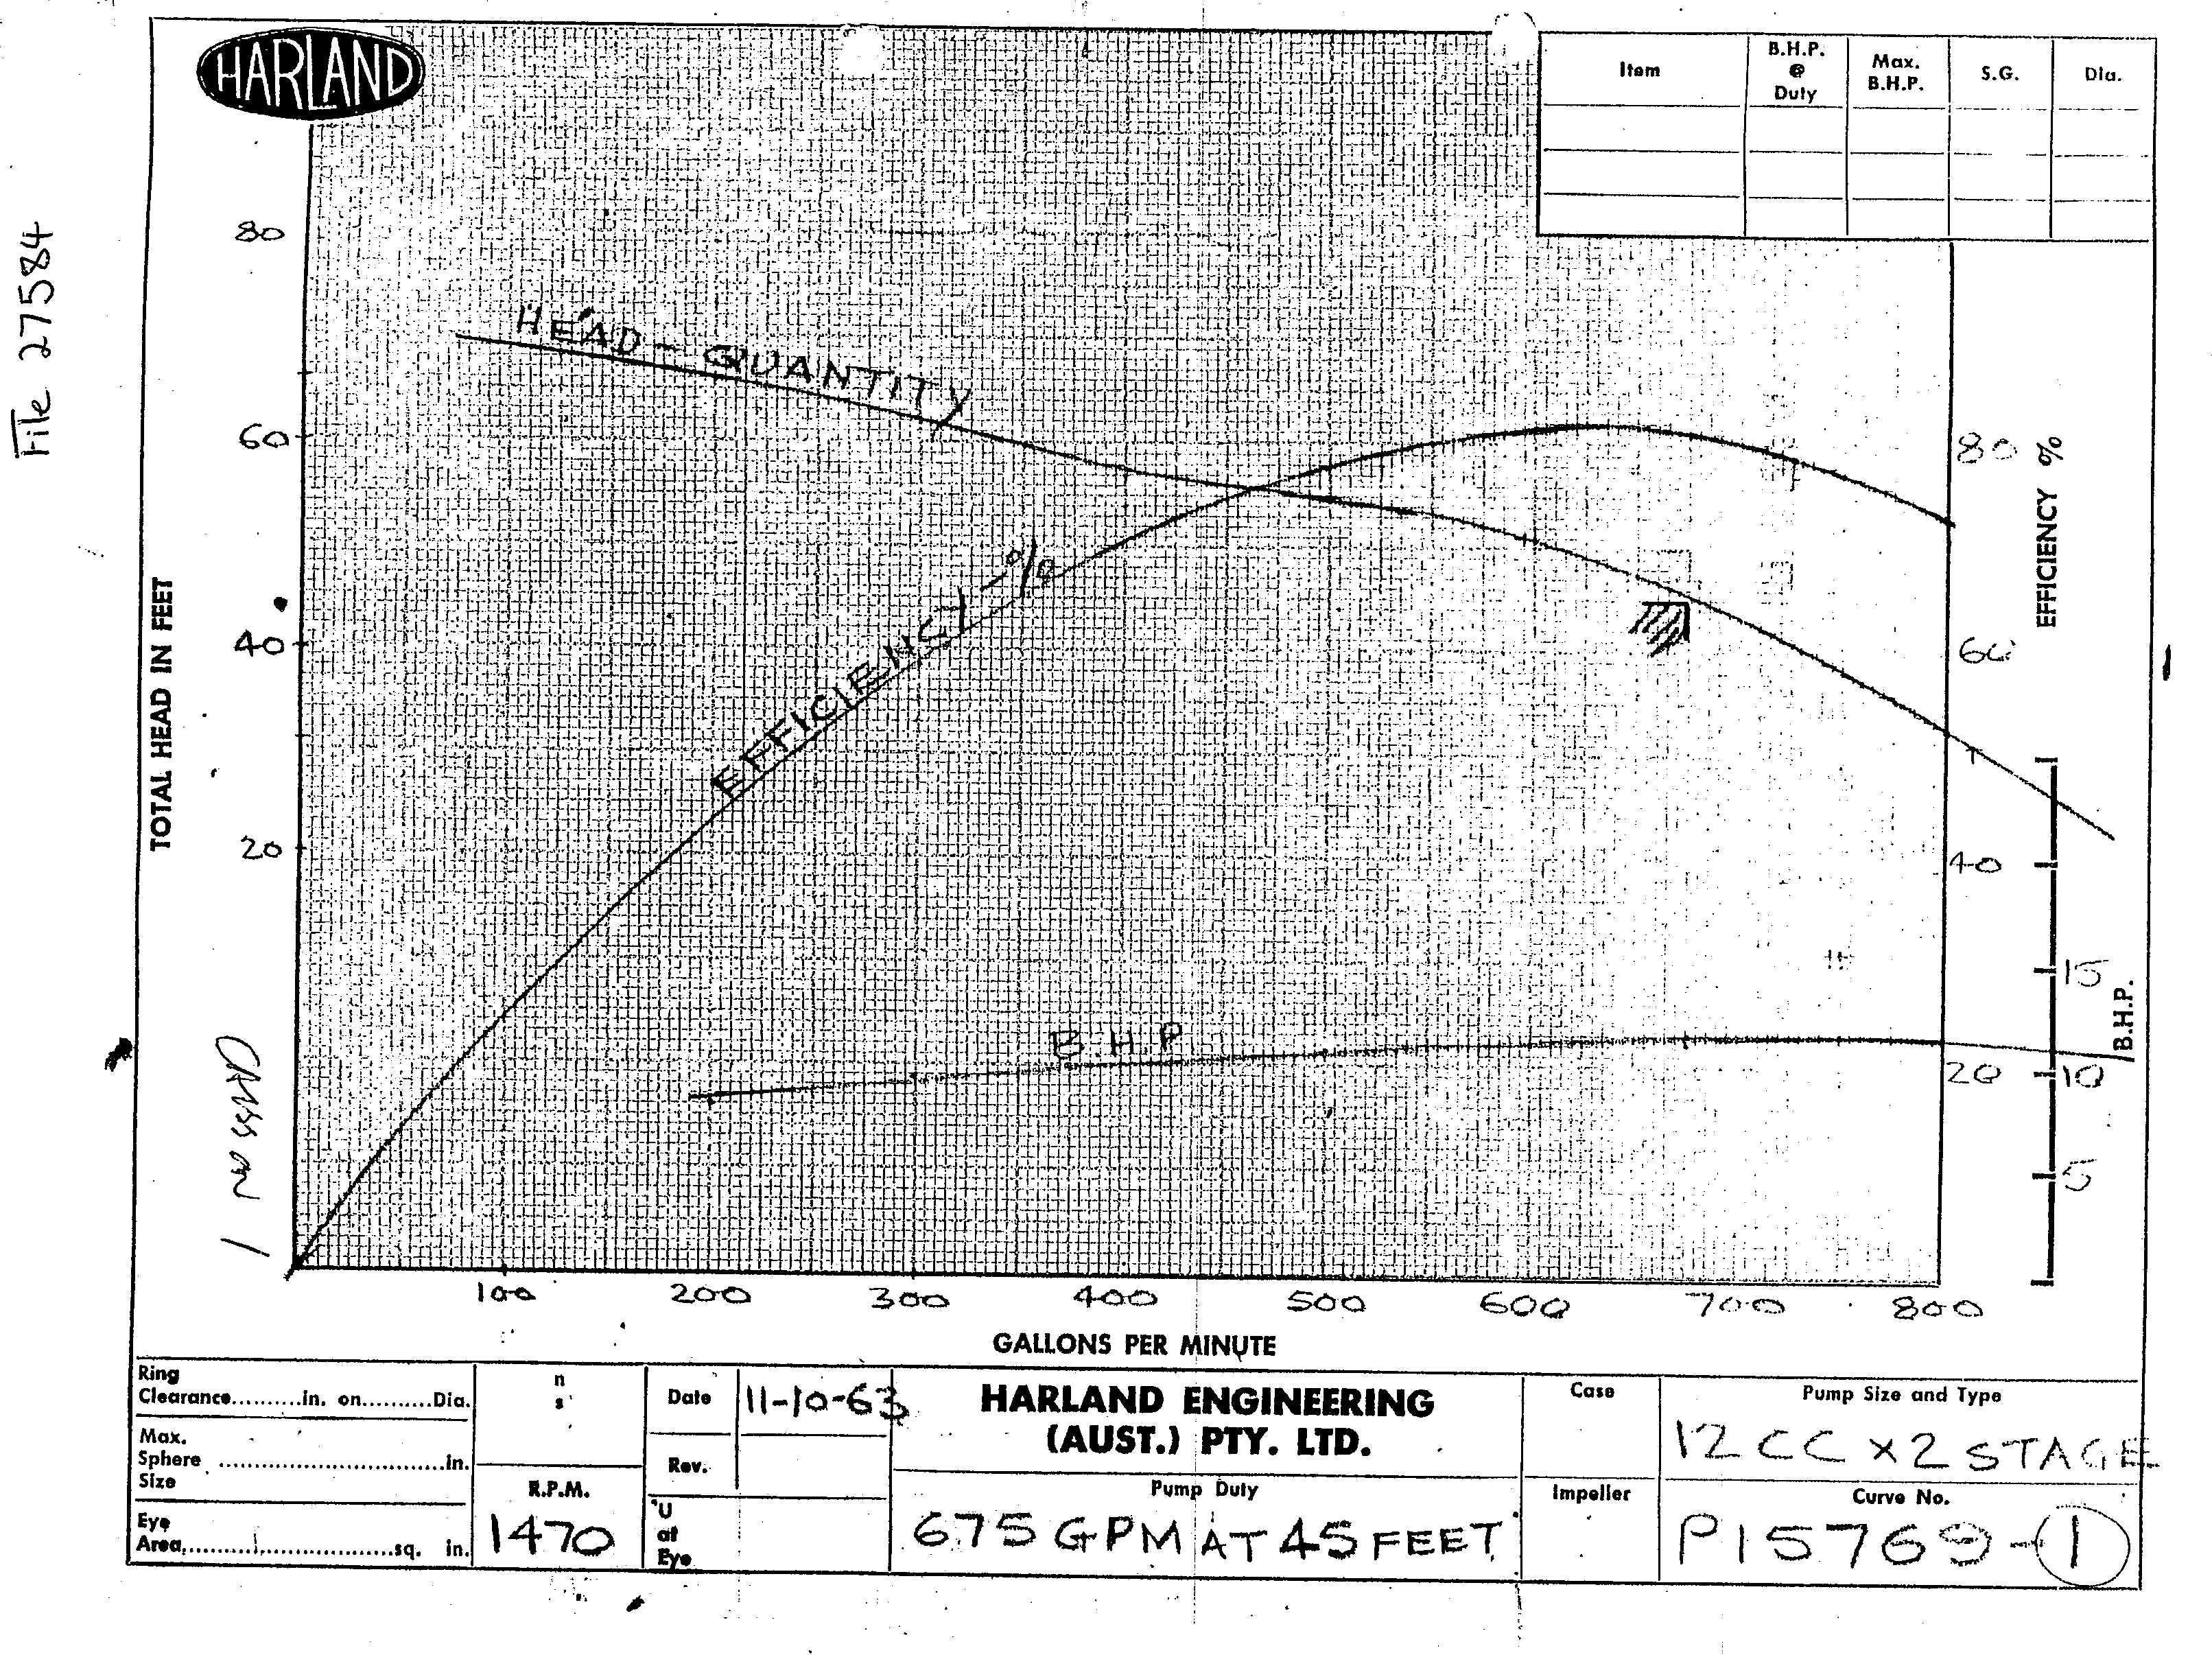 HARLAND
Item
B.H.P.
@
Duty
Max.
B.H.P.
S.G.
Dia.
File 27584
80
60
40
20
TOTAL HEAD IN FEET
HEAD - QUANTITY
EFFICIENCY - %
B.H.P
80
60
40
20
EFFICIENCY %
15
10
5
B.H.P.
100
200
300
400
500
600
700
800
GALLONS PER MINUTE
Ring
Clearance..........in. on..........Dia.
Max.
Sphere ..............................in.
Size
Eye
Area..............................sq. in.
n
s
R.P.M.
1470
Date
11-10-63
Rev.
U
at
Eye
HARLAND ENGINEERING
(AUST.) PTY. LTD.
Pump Duty
675 GPM AT 45 FEET
Case
Impeller
Pump Size and Type
12 CC x 2 STAGE
Curve No.
P15769-1